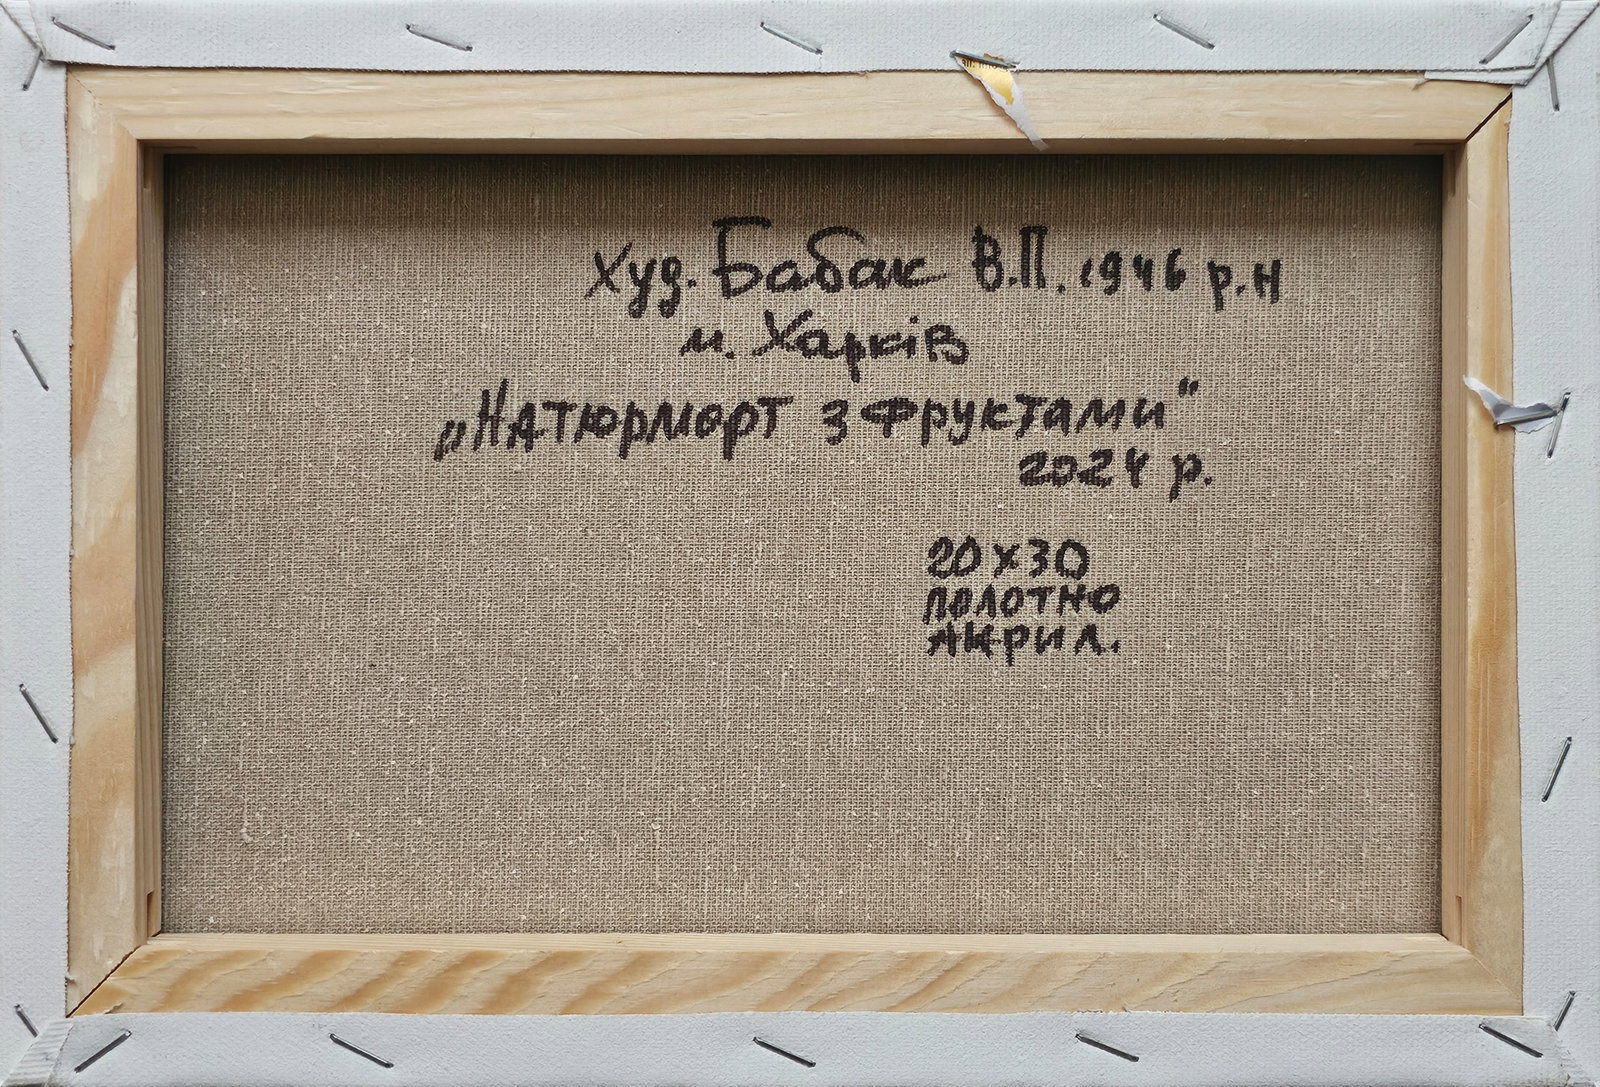 Худ. Бабак В.П. 1946 р.н
м. Харків
„Натюрморт з фруктами“
2024 р.
20х30
полотно
акрил.